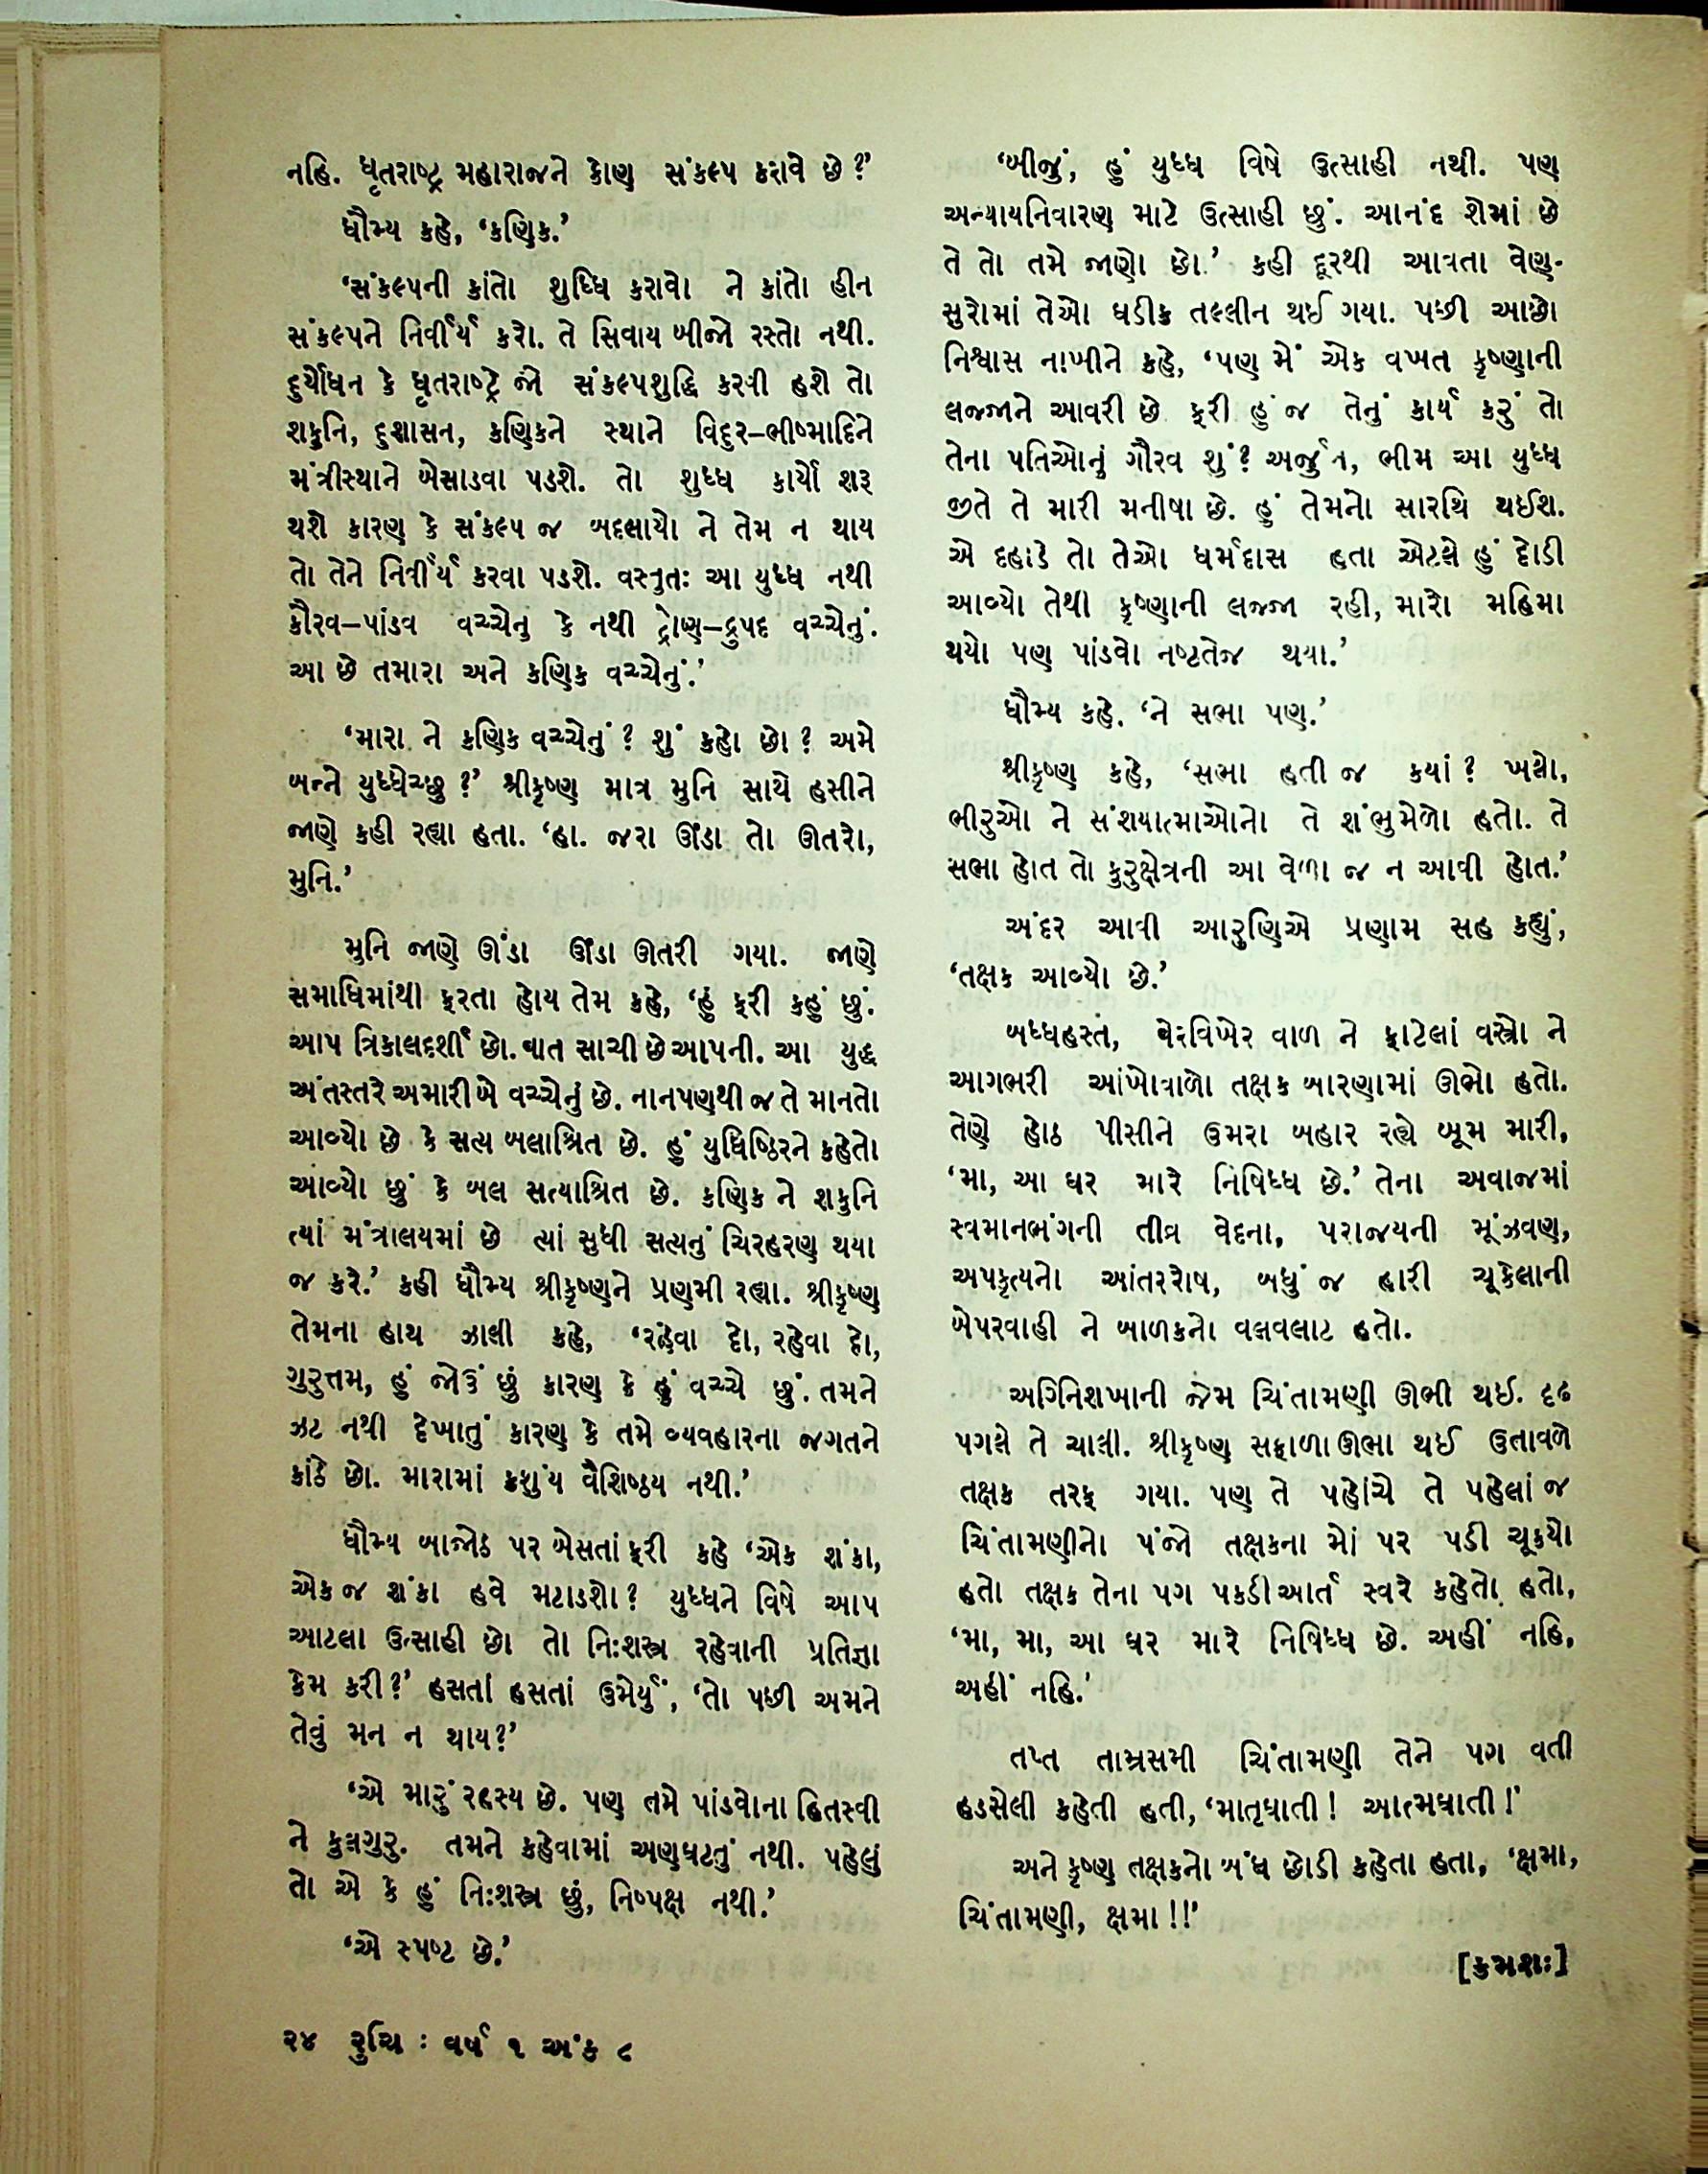 નહિ. ધૃતરાષ્ટ્ર મહારાજને કોણ સંકલ્પ કરાવે છે?’
ધૌમ્ય કહે, ‘કણિક.’
‘સંકલ્પની કાંતો શુધ્ધિ કરાવો ને કાંતો હીન
સંકલ્પને નિર્વીર્ય કરો. તે સિવાય બીજો રસ્તો નથી.
દુર્યોધન કે ધૃતરાષ્ટ્રે જો સંકલ્પશુદ્ધિ કરવી હશે તો
શકુનિ, દુશાસન, કણિકને સ્થાને વિદુર–ભીષ્માદિને
મંત્રીસ્થાને બેસાડવા પડશે. તો શુધ્ધ કાર્યો શરૂ
થશે કારણ કે સંકલ્પ જ બદલાયો ને તેમ ન થાય
તો તેને નિર્વીર્ય કરવા પડશે. વસ્તુતઃ આ યુધ્ધ નથી
કૌરવ–પાંડવ વચ્ચેનુ કે નથી દ્રોણ–દ્રુપદ વચ્ચેનું.
આ છે તમારા અને કણિક વચ્ચેનું.’
‘મારા ને કણિક વચ્ચેનું? શું કહો છો? અમે
બન્ને યુધ્ધેચ્છુ?’ શ્રીકૃષ્ણ માત્ર મુનિ સાથે હસીને
જાણે કહી રહ્યા હતા. ‘હા. જરા ઊંડા તો ઊતરો,
મુનિ.’
મુનિ જાણે ઊંડા ઊંડા ઊતરી ગયા. જાણે
સમાધિમાંથી ફરતા હોય તેમ કહે, ‘હું ફરી કહું છું.
આપ ત્રિકાલદર્શી છો. વાત સાચી છે આપની. આ યુદ્ધ
અંતસ્તરે અમારી બે વચ્ચેનું છે. નાનપણથી જ તે માનતો
આવ્યો છે કે સત્ય બલાશ્રિત છે. હું યુધિષ્ઠિરને કહેતો
આવ્યો છું કે બલ સત્યાશ્રિત છે. કણિક ને શકુનિ
ત્યાં મંત્રાલયમાં છે ત્યાં સુધી સત્યનું ચિરહરણ થયા
જ કરે.’ કહી ધૌમ્ય શ્રીકૃષ્ણને પ્રણમી રહ્યા. શ્રીકૃષ્ણ
તેમના હાથ ઝાલી કહે, ‘રહેવા દો, રહેવા દો,
ગુરુત્તમ, હું જોઉં છું કારણ કે હું વચ્ચે છું. તમને
ઝટ નથી દેખાતું કારણ કે તમે વ્યવહારના જગતને
કાંઠે છો. મારામાં કશુંય વૈશિષ્ઠય નથી.’
ધૌમ્ય બાજોઠ પર બેસતાં ફરી કહે ‘એક શંકા,
એક જ શંકા હવે મટાડશો? યુધ્ધને વિષે આપ
આટલા ઉત્સાહી છો તો નિઃશસ્ત્ર રહેવાની પ્રતિજ્ઞા
કેમ કરી?’ હસતાં હસતાં ઉમેર્યું, ‘તો પછી અમને
તેવું મન ન થાય?’
‘એ મારું રહસ્ય છે. પણ તમે પાંડવોના હિતસ્વી
ને કુલગુરુ. તમને કહેવામાં અણઘટતું નથી. પહેલું
તો એ કે હું નિઃશસ્ત્ર છું, નિષ્પક્ષ નથી.’
‘એ સ્પષ્ટ છે.’
‘બીજું, હું યુધ્ધ વિષે ઉત્સાહી નથી. પણ
અન્યાયનિવારણ માટે ઉત્સાહી છું. આનંદ શેમાં છે
તે તો તમે જાણો છો.’ કહી દૂરથી આવતા વેણુ-
સુરોમાં તેઓ ઘડીક તલ્લીન થઈ ગયા. પછી આછો
નિશ્વાસ નાખીને કહે, ‘પણ મેં એક વખત કૃષ્ણાની
લજ્જાને આવરી છે ફરી હું જ તેનું કાર્ય કરું તો
તેના પતિઓનું ગૌરવ શું? અર્જુન, ભીમ આ યુધ્ધ
જીતે તે મારી મનીષા છે. હું તેમનો સારથિ થઈશ.
એ દહાડે તો તેઓ ધર્મદાસ હતા એટલે હું દોડી
આવ્યો તેથી કૃષ્ણાની લજ્જા રહી, મારો મહિમા
થયો પણ પાંડવો નષ્ટતેજ થયા.’
ધૌમ્ય કહે. ‘ને સભા પણ.’
શ્રીકૃષ્ણ કહે, ‘સભા હતી જ કયાં? ખલો,
ભીરુઓ ને સંશયાત્માઓનો તે શંભુમેળો હતો. તે
સભા હોત તો કુરુક્ષેત્રની આ વેળા જ ન આવી હોત.’
અંદર આવી આરુણિએ પ્રણામ સહ કહ્યું,
‘તક્ષક આવ્યો છે.’
બધ્ધહસ્ત, વેરવિખેર વાળ ને ફાટેલાં વસ્ત્રો ને
આગભરી આંખોવાળો તક્ષક બારણામાં ઊભો હતો.
તેણે હોઠ પીસીને ઉમરા બહાર રહ્યે બૂમ મારી,
‘મા, આ ઘર મારે નિષિધ્ધ છે.’ તેના અવાજમાં
સ્વમાનભંગની તીવ્ર વેદના, પરાજયની મૂંઝવણ,
અપકૃત્યનો આંતરરોષ, બધું જ હારી ચૂકેલાની
બેપરવાહી ને બાળકનો વલવલાટ હતો.
અગ્નિશિખાની જેમ ચિંતામણી ઊભી થઈ. દૃઢ
પગલે તે ચાલી. શ્રીકૃષ્ણ સફાળા ઊભા થઈ ઉતાવળે
તક્ષક તરફ ગયા. પણ તે પહોંચે તે પહેલાં જ
ચિંતામણીનો પંજો તક્ષકના મોં પર પડી ચૂકયો
હતો તક્ષક તેના પગ પકડી આર્ત સ્વરે કહેતો હતો,
‘મા, મા, આ ઘર મારે નિષિધ્ધ છે. અહીં નહિ,
અહીં નહિ.’
તપ્ત તામ્રસમી ચિંતામણી તેને પગ વતી
હડસેલી કહેતી હતી, ‘માતૃઘાતી! આત્મઘાતી!’
અને કૃષ્ણ તક્ષકનો બંધ છોડી કહેતા હતા, ‘ક્ષમા,
ચિંતામણી, ક્ષમા!!’
[ક્રમશઃ]
૨૪ રુચિ : વર્ષ ૧ અંક ૮